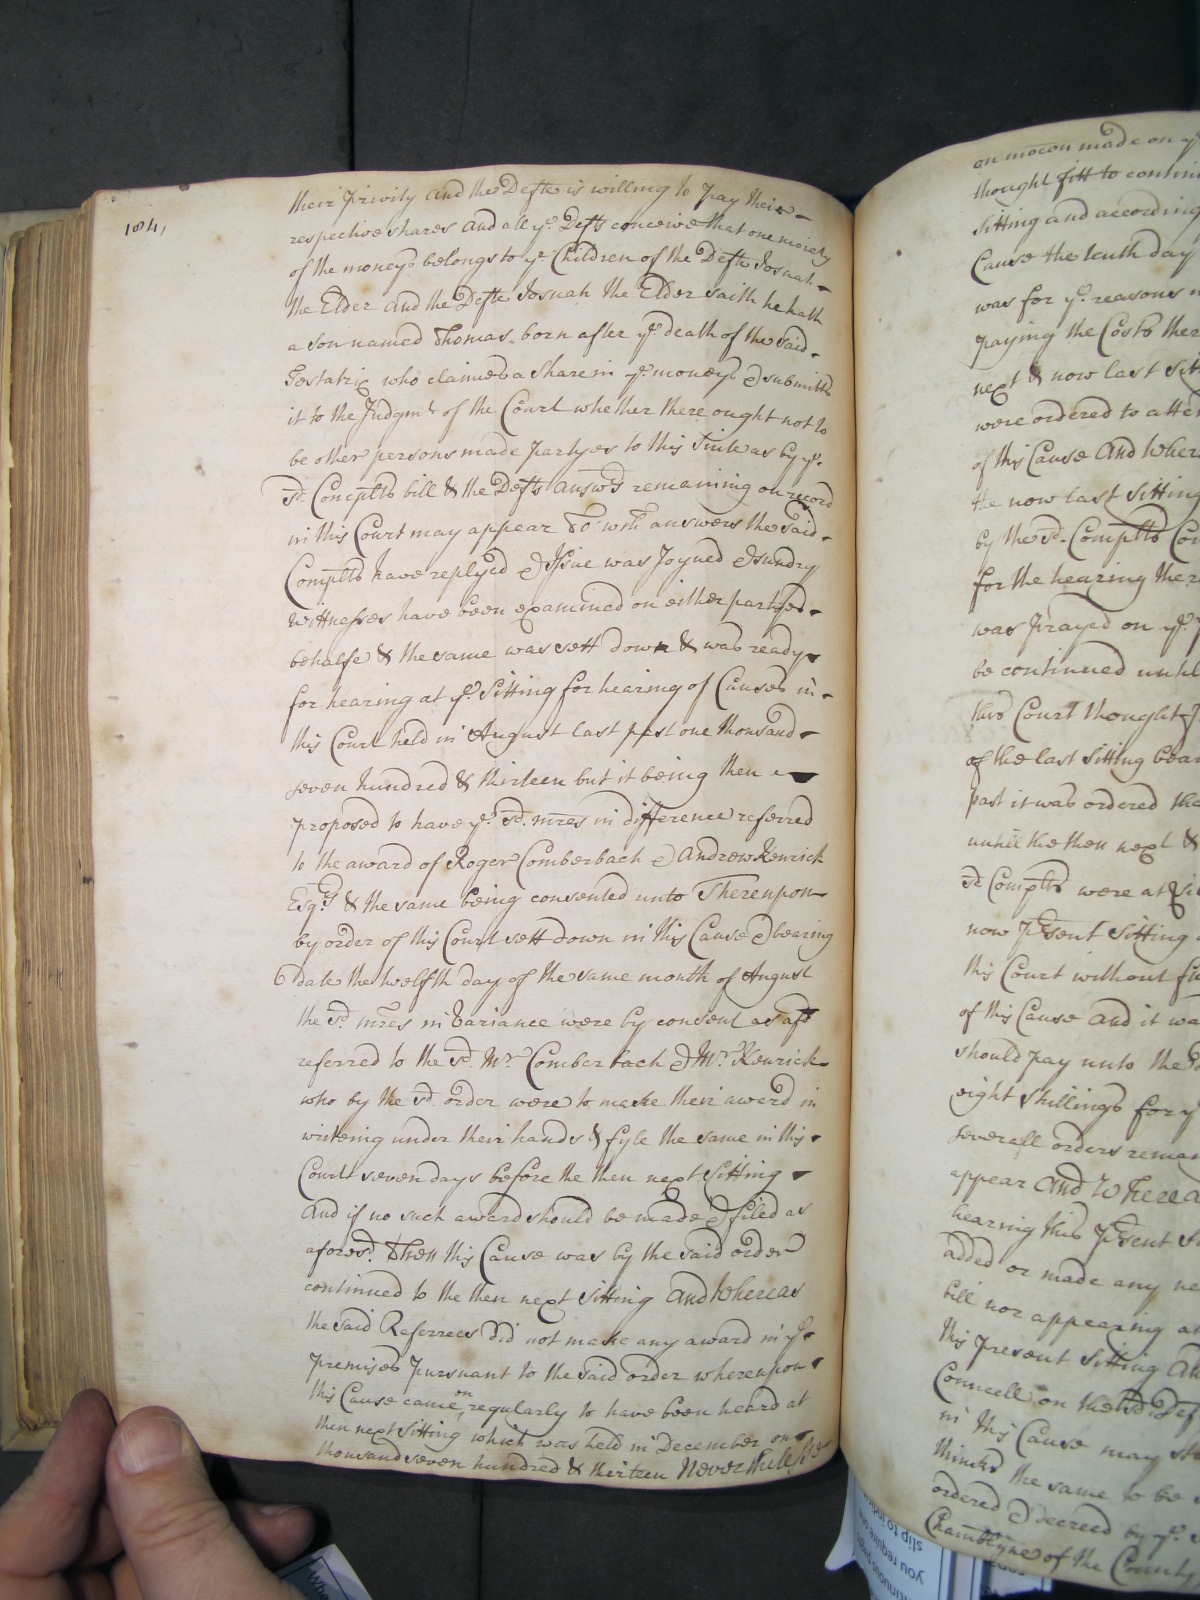 184,
their privity and the Defte is willing to pay their
respective shares And all ye. Defts conceive that one moiety
of the moneys belongs to ye Children of the Defte Josuah
the Elder And the Defte Josuah the Elder saith he hath
a son named Thomas born after ye death of the said
Testatrix who claimes a share in ye. moneys & submitts
it to the Judgmt of the Court whether there ought not to
be other persons made partyes to this Suite as by ye.
sd. Complts bill & the Defts answrs remaining on record
in this Court may appear To wch answers the said
Complts have replyed & Issue was Joyned & sundry
witnesses have been examined on either partyes
behalfe & the same was sett down & was ready
for hearing at ye. Sitting for hearing of Causes in
this Court held in August last past one thousand
seven hundred & thirteen but it being then
proposed to have ye. sd. mres in difference referred
to the award of Roger Comberbach & Andrew Kenrick
Esqrs & the same being consented unto Thereupon
by order of this Court sett down in this Cause & bearing
date the twelfth day of the same month of August
the sd. mres in Variance were by consent as afd
referred to the sd. Mr. Comberbach & Mr. Kenrick
who by the sd. order were to make their award in
writeing under their hands & fyle the same in this
Court seven days before the then next Sitting
And if no such award should be made & filed as
aforesd. Then this Cause was by the said order
continued to the then next Sitting And Whereas
the said Referrees did not make any award in ye.
premises pursuant to the said order whereupon
this Cause came on regularly to have been heard at
then next Sitting which was held in December one
thousand seven hundred & thirteen Nevertheless
on mocon made on
thought fitt to
Sitting and
Cause the tenth day
was for ye. reasons
paying the Costs
next & now last
were ordered to
of this Cause And
the now last Sitting
by the sd. Complts
for the hearing
was prayed on ye.
be continued
this Court thought
of the last Sitting
past it was ordered
untill the then next &
sd. Complts were at
now present Sitting
this Court without
of this Cause And it
should pay unto the
eight shillings for
severall orders
appear And
hearing this present
added or made any
bill nor appearing
this present Sitting
Councell on the sd.
in this Cause may
thinks the same to be
ordered & decreed by ye.
Chamblyne of the County
you require one
slip to